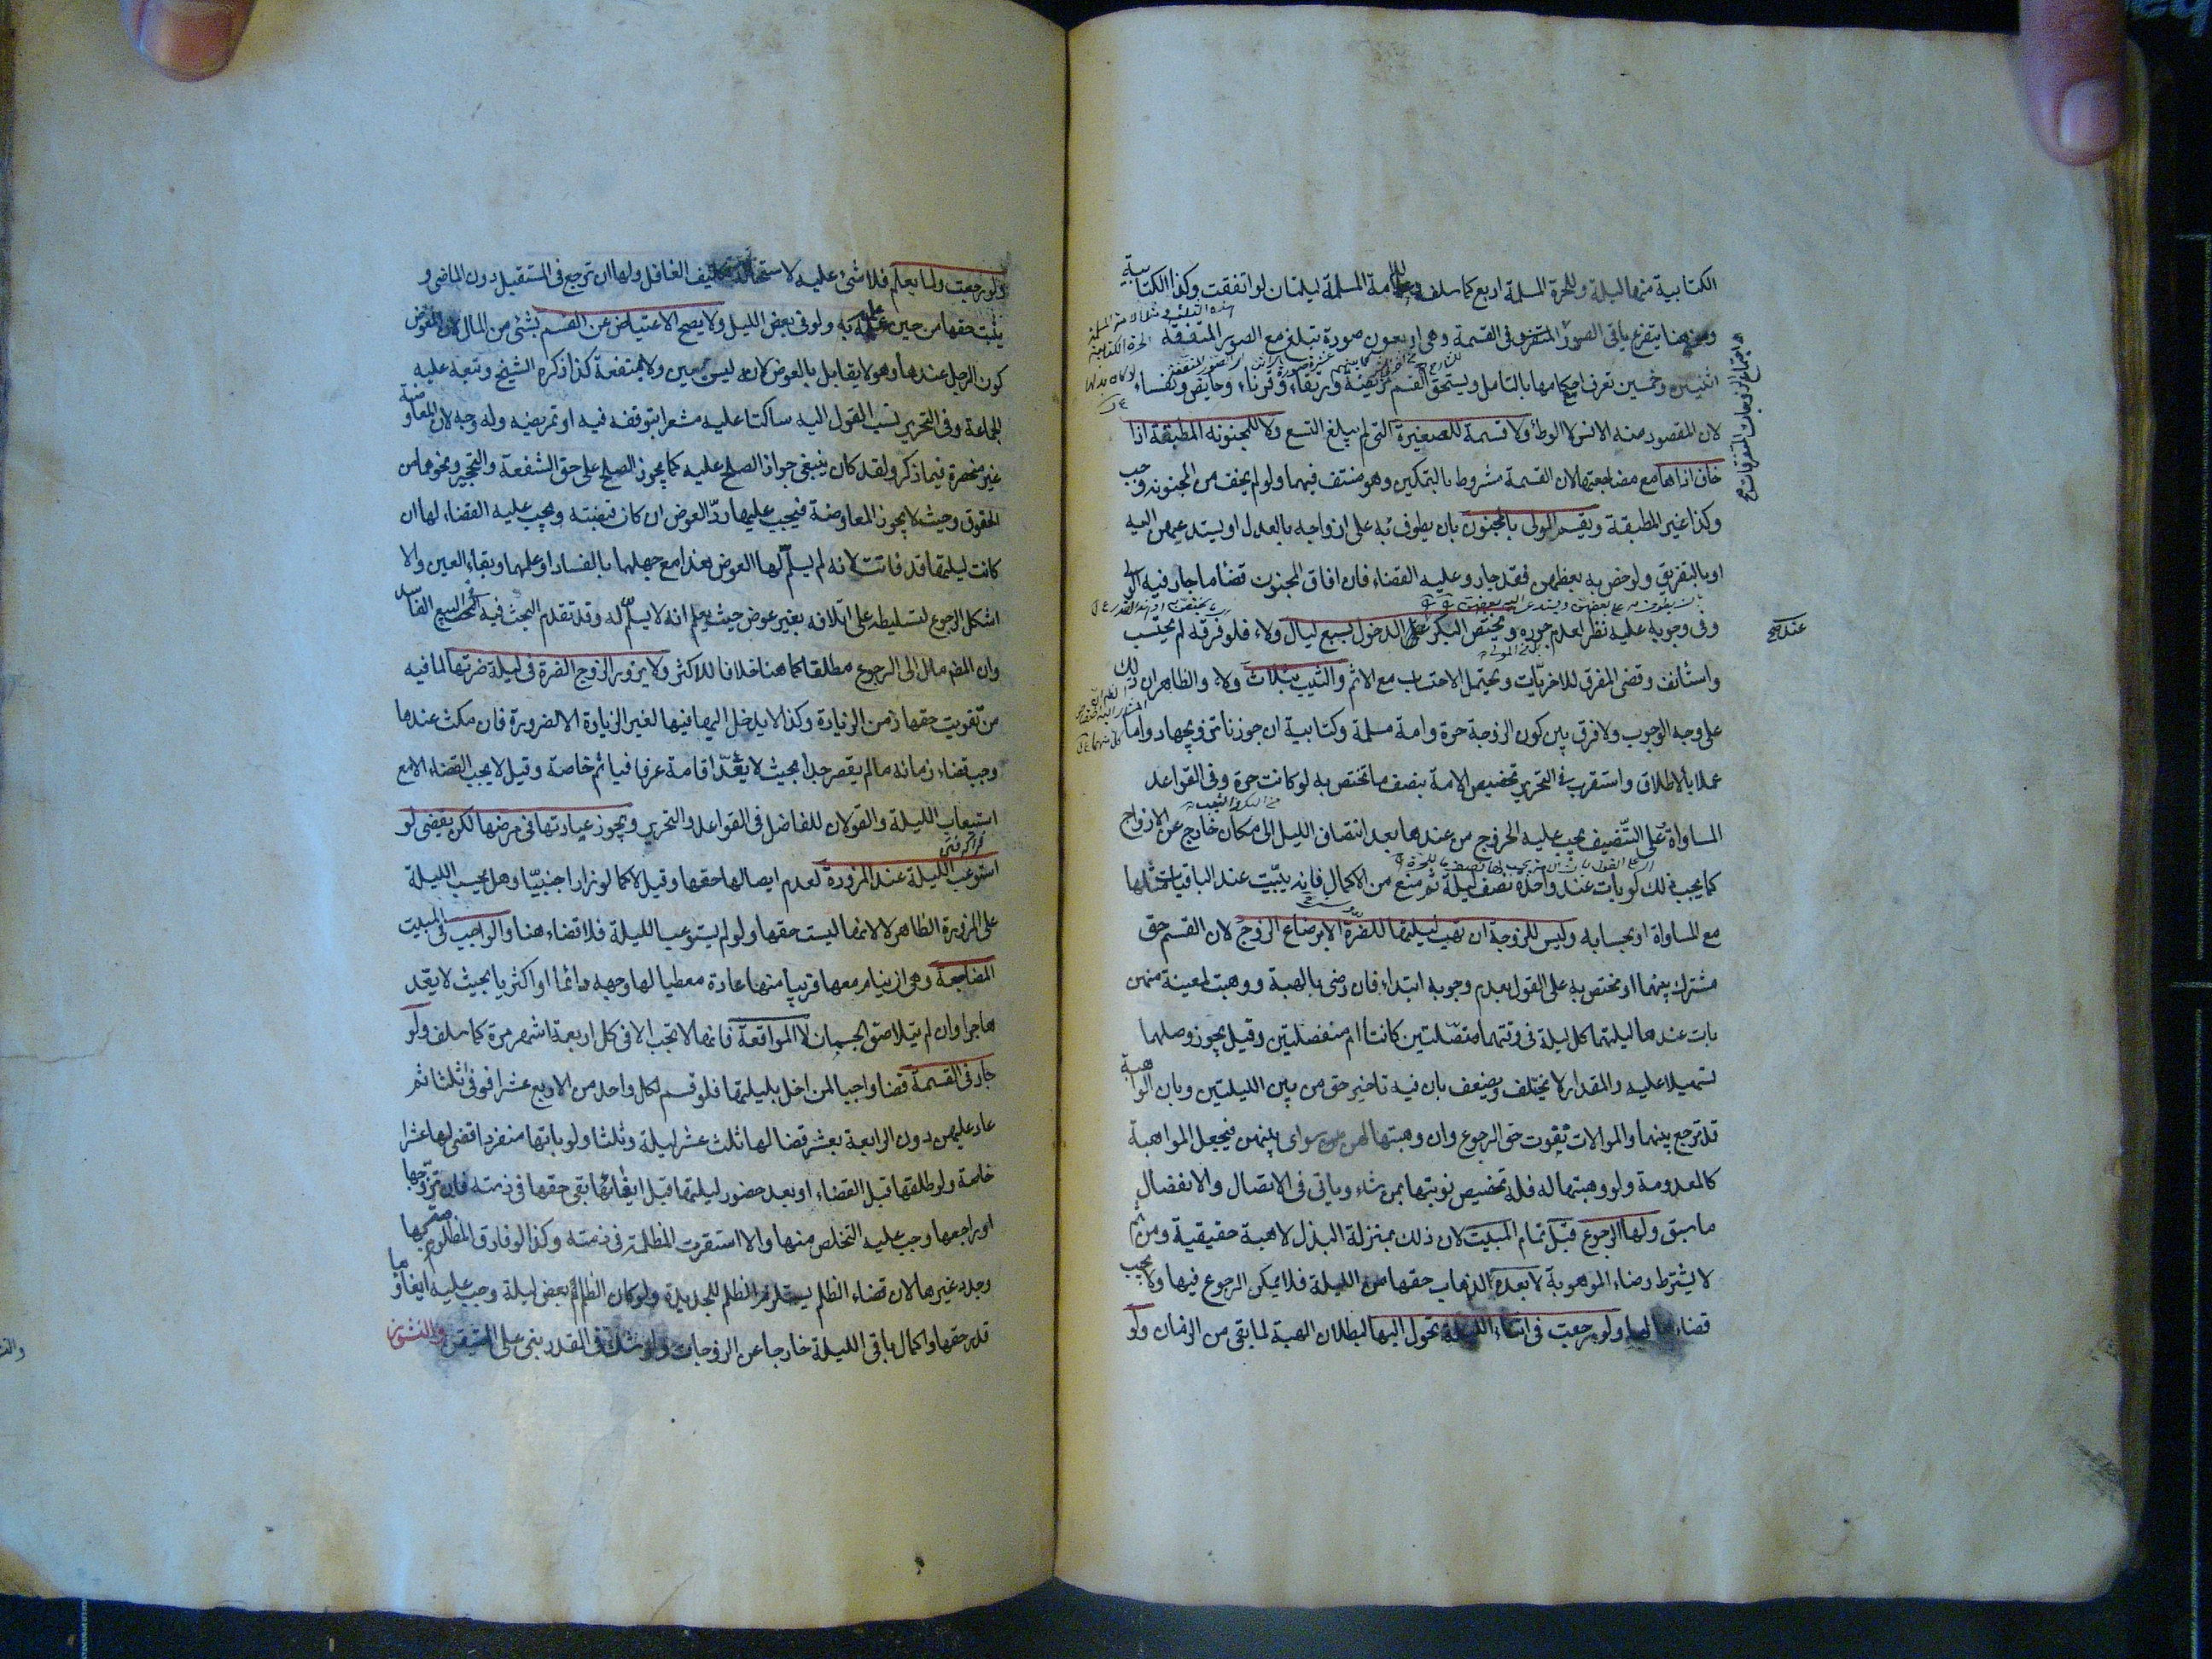 الكتابية منها ليلة وللحرة المسلمة اربع كما سلف وللامة المسلمة ليلتان لو اتفقت وكذا الكتابية
ومن هنا يتفرع باقى الصور المتفرقة فى القسمة وهى اربعون صورة تبلغ مع الصور المتفقة
اثنتين وخمسين تعرف احكامها بالتامل ويستحق القسم مريضة ورتقاء وقرناء وحايض ونفساء
لان المقصود منه الانس لا الوطأ ولا قسمة للصغيرة التى لم يبلغ التسع ولا للمجنونه المطبقة اذا
خاف اذاها مع مضاجعتها لان القسمة مشروط بالتمكين وهو منتف فيهما ولو لم يخف من المجنونه وجب
وكذا غير المطبقة ويقسم المولى بالمجنون بان يطوف به على ازواجه بالعدل او يستدعيهن اليه
او بالتفريق ولو خص به بعضهن فقد جار وعليه القضاء فان افاق المجنون قضا ما جار فيه الولى
وفى وجوبه عليه نظر لعدم جوره ويختص البكر عند الدخول بسبع ليال ولاء فلو فرقه لم يحتسب
واستأنف وقضى المفرق للاخريات ويحتمل الاحتساب مع الاثم والثيب بثلاث ولاء والظاهر ان ذلك
على وجه الوجوب ولا فرق بين كون الزوجة حرة وامة مسلمة وكتابية ان جوزنا تزويجها دواما
عملا بالاطلاق واستقرب فى التحرير تخصيص الامة بنصف ما تختص به لو كانت حرة وفى القواعد
المساواة وعلى التنصيف يجب عليه الخروج من عندها بعد انتصاف الليل الى مكان خارج عن الازواج
كما يجب ذلك لو بات عند واحدة نصف ليلة ثم منع من الاكمال فانه يبيت عند الباقيات مثلها
مع المساواة او بحسابه وليس للزوجة ان تهب ليلتها للضرة الا برضاء الزوج لان القسم حق
مشترك بينهما او مختص به على القول بعدم وجوبه ابتداء فان رضى بالهبة ووهبت لمعينة منهن
بات عندها ليلتهما كل ليلة فى وقتهما متصلتين كانتا ام منفصلتين وقيل يجوز وصلهما
تسهيلا عليه والمقدار لا يختلف ويضعف بان فيه تاخير حق من بين الليلتين وبان الواهبة
قد ترجع بينهما والموالات تفوت حق الرجوع وان وهبتها لهن سوى بينهن فيجعل الواهبة
كالمعدومة ولو وهبتها له فله تخصيص نوبتها بمن شاء وياتى فى الاتصال والانفصال
ما سبق ولها الرجوع قبل تمام المبيت لان ذلك بمنزلة البذل لا هبة حقيقية ومن ثم
لا يشترط رضاء الموهوبة لا بعده لذهاب حقها من الليلة فلا يمكن الرجوع فيها ولا يجب
قضاءها لها ولو رجعت فى اثناء الليلة تحول اليها لبطلان الهبة لما بقى من الزمان ولو
عند صح
ولو رجعت ولما يعلم فلا شئ عليه لاستحالة تكليف الغافل ولها ان ترجع فى المستقبل دون الماضى و
يثبت حقها من حين علمه به ولو فى بعض الليل ولا يصح الاعتياض عن القسم بشئ من المال لان المعوض
كون الرجل عندها وهو لا يقابل بالعوض لانه ليس بعين ولا بمنفعة كذا ذكره الشيخ وتبعه عليه
الجماعة وفى التحرير نسب القول اليه ساكتا عليه مشعرا بتوقفه فيه او تمريضه وله وجه لان المعاوضة
غير منحصرة فيما ذكر ولقد كان ينبغى جواز الصلح عليه كما يجوز الصلح على حق الشفعة والتحجير ونحوهما من
الحقوق وحيث لا يجوز المعاوضة فيجب عليها رد العوض ان كانت قبضته ويجب عليه القضاء لها ان
كانت ليلتها قد فاتت لانه لم يسلم لها العوض هذا مع جهلهما بالفساد او علمهما وبقاء العين والا
اشكل الرجوع لتسليطه على اتلافه بغير عوض حيث يعلم انه لا يسلم له وقد تقدم البحث فيه فى البيع الفاسد
وان المص مال الى الرجوع مطلقا كما هنا خلافا للاكثر ولا يزور الزوج الضرة فى ليلة ضرتها لما فيه
من تفويت حقها زمن الزيارة وكذا لا يدخل اليها فيها لغير الزيارة الا لضرورة فان مكث عندها
وجب قضاء زمانه ما لم يقصر جدا بحيث لا يعد اقامة عرفا فيأثم خاصة وقيل لا يجب القضاء الا مع
استيعاب الليلة والقولان للفاضل فى القواعد والتحرير ويجوز عيادتها فى مرضها لكن يقضى لو
استوعب الليلة عند المزورة لعدم ايصالها حقها وقيل لا كما لو زار اجنبيا وهل يحسب الليلة
على المزورة الظاهر لا لانها ليست حقها ولو لم يستوعب الليلة فلا قضاء هنا والواجب فى المبيت
المضاجعة وهى ان ينام معها قريبا منها عادة معطيا لها وجهه دائما او اكثريا بحيث لا يعد
هاجرا وان لم يتلاصق الجسمان لا المواقعة فانها لا تجب الا فى كل اربعة اشهر مرة كما سلف ولو
جار فى القسمة قضا واجبا لمن اخل بليلتها فلو قسم لكل واحد من الاربع عشرا فوفى ثلثا ثم
عاد عليهن دون الرابعة بعشر قضا لها ثلث عشر ليلة وثلثا ولو باتها منفردا قضى لها عشرا
خاصة ولو طلقها قبل القضاء او بعد حضور ليلتها قبل ايفائها بقى حقها فى ذمته فان تزوجها
او راجعها وجب عليه التخلص منها والا استقرت المظلمة فى ذمته وكذا لو فارق المظلوم بها
وجدد غيرها لان قضاء الظلم يستلزم الظلم للجديدة ولو كان الظلم بعض ليلة وجب عليه ايفاؤها
قدر حقها واكمال باقى الليلة خارجا عن الزوجات ولو شك فى القدر بنى على المتيقن والنشوز